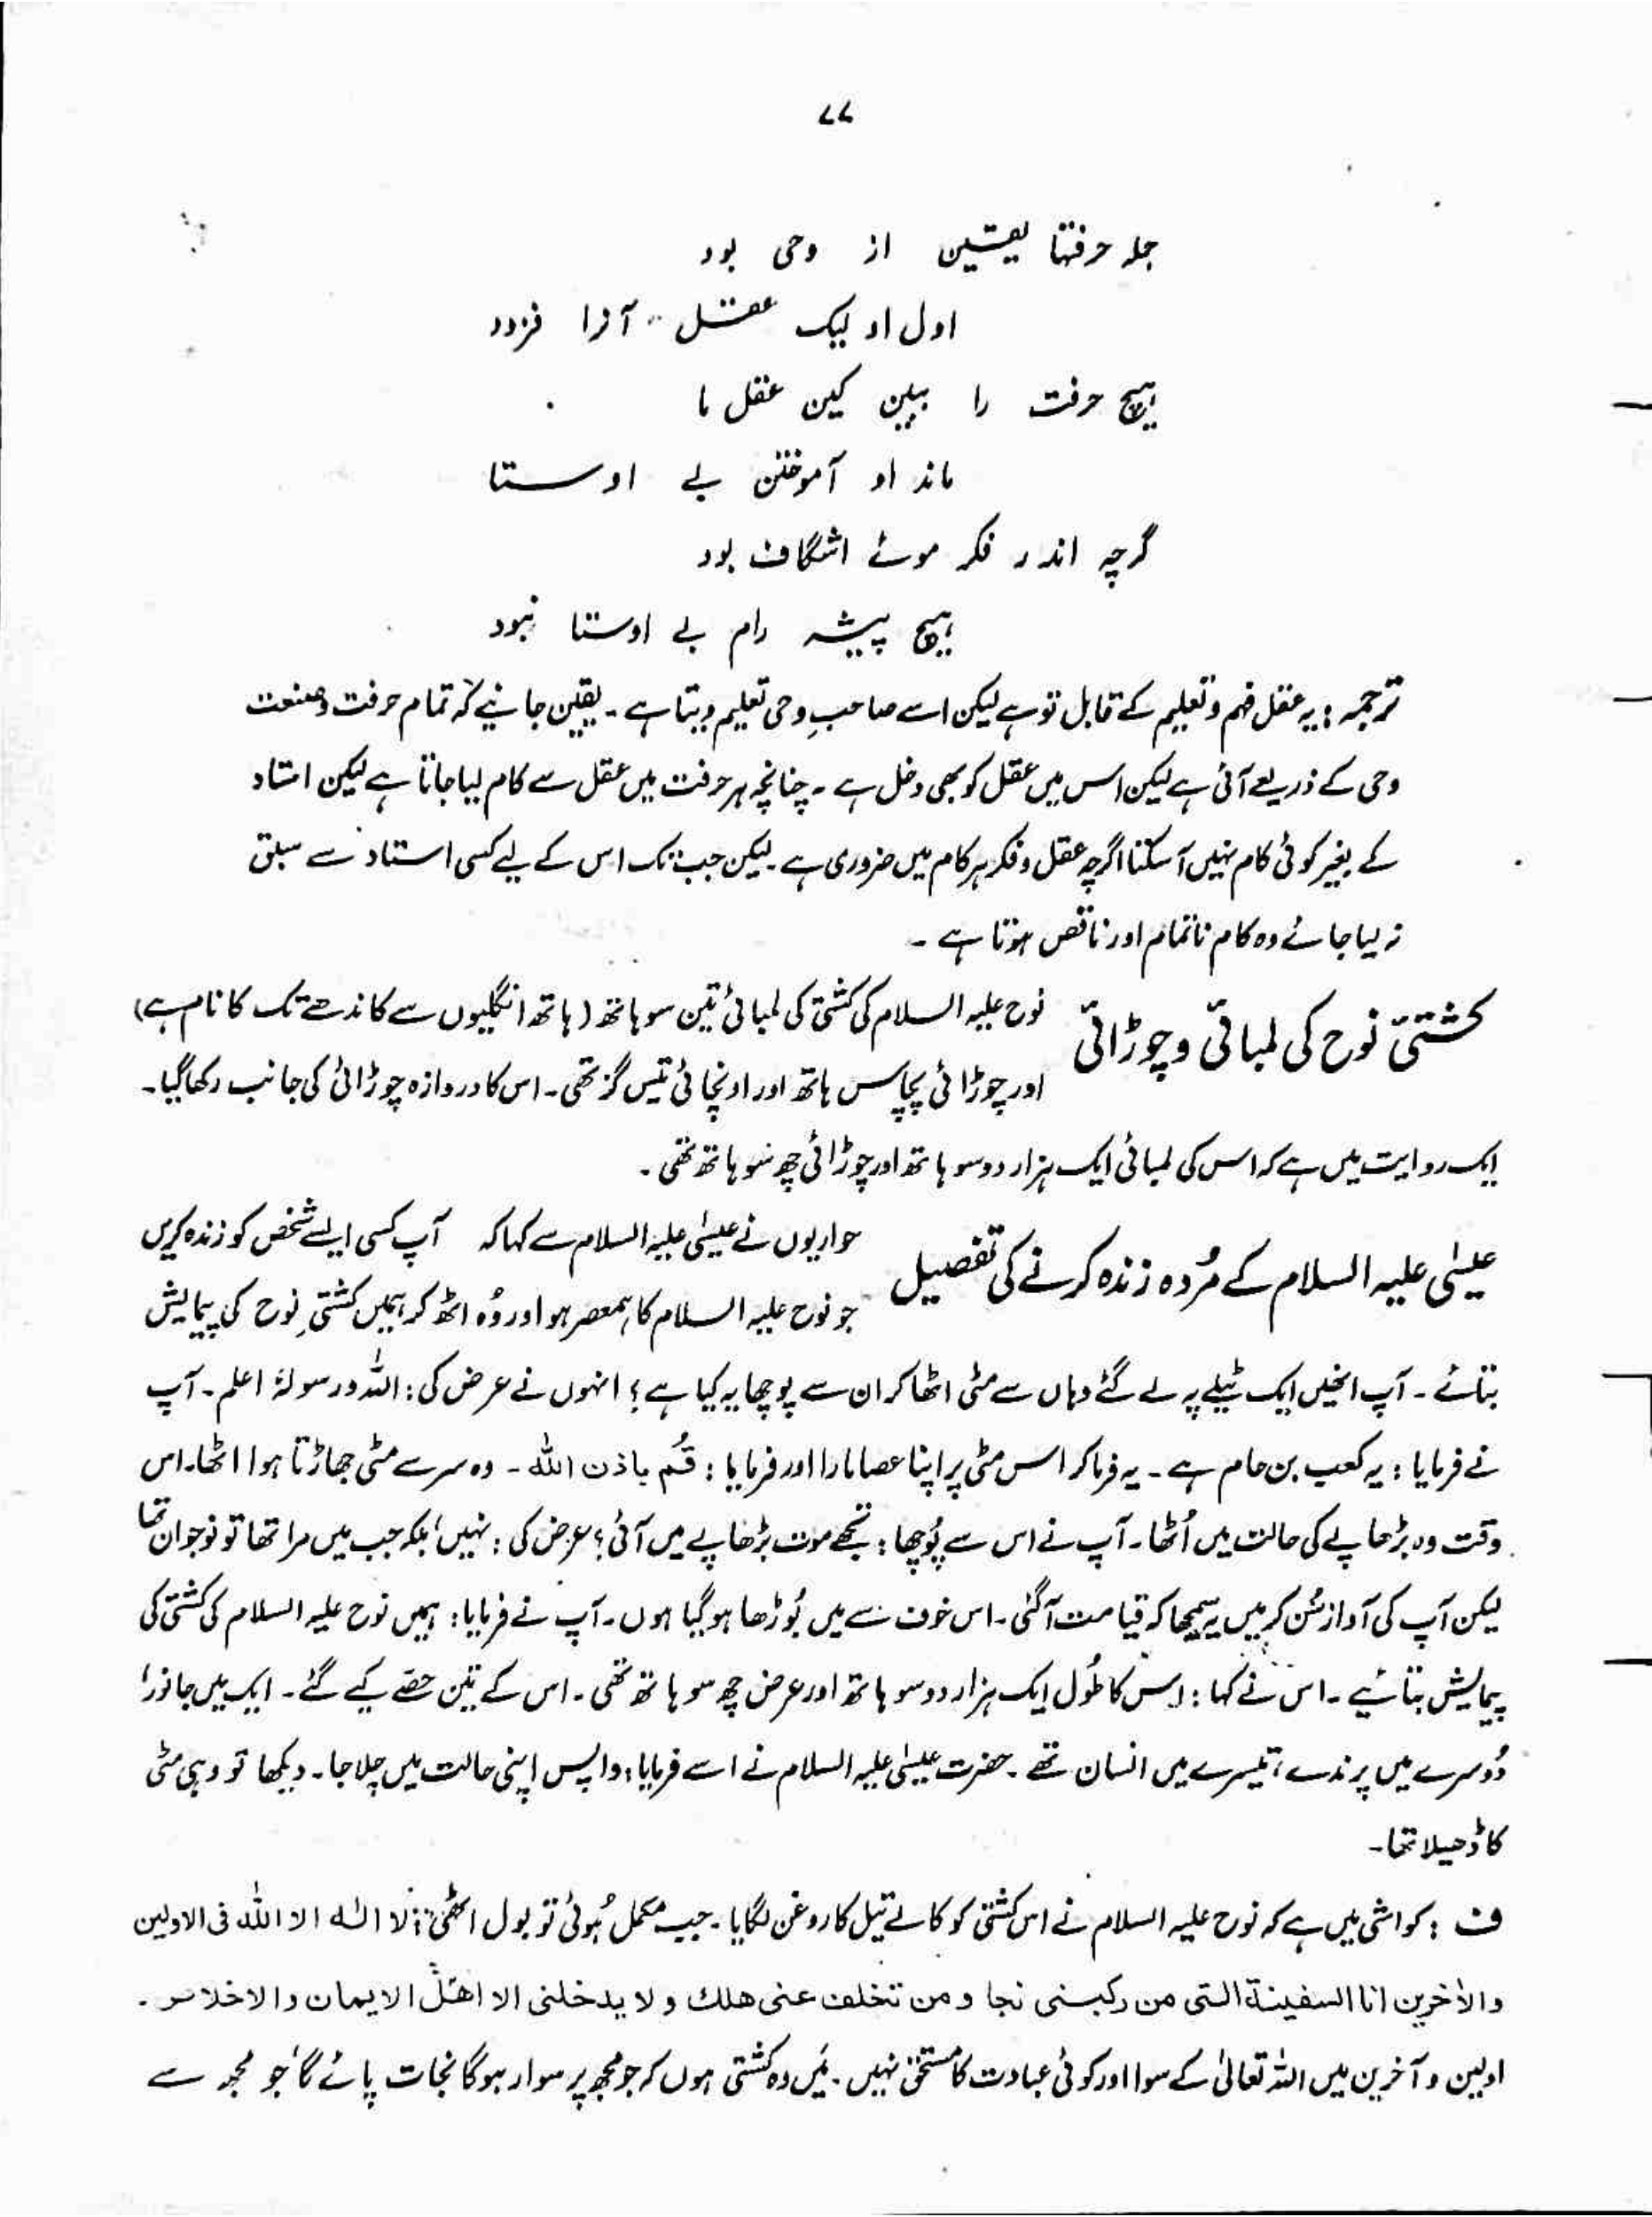 ۷۷
جملہ حرفتہا یقین از وحی بود
اول او لیک عقل آنرا فزود
ہیچ حرفت را ببین کین عقل ما
ماند او آموختن بے اوستا
گرچہ اندر فکر موئے اشگاف بود
ہیچ پیشہ رام بے اوستا نبود
ترجمہ : یہ عقل فہم و تعلیم کے قابل تو ہے لیکن اسے صاحبِ وحی تعلیم دیتا ہے ۔ یقین جانیے کہ تمام حرفت و صنعت
وحی کے ذریعے آئی ہے لیکن اس میں عقل کو بھی دخل ہے ۔ چنانچہ ہر حرفت میں عقل سے کام لیا جاتا ہے لیکن استاد
کے بغیر کوئی کام نہیں آسکتا اگرچہ عقل و فکر ہر کام میں ضروری ہے ۔ لیکن جب تک اس کے لیے کسی استاد سے سبق
نہ لیا جائے وہ کام ناتمام اور ناقص ہوتا ہے ۔
کشتیٔ نوح کی لمبائی و چوڑائی
نوح علیہ السلام کی کشتی کی لمبائی تین سو ہاتھ ( ہاتھ انگلیوں سے کاندھے تک کا نام ہے )
اور چوڑائی پچاس ہاتھ اور اونچائی تیس گز تھی ۔ اس کا دروازہ چوڑائی کی جانب رکھا گیا ۔
ایک روایت میں ہے کہ اس کی لمبائی ایک ہزار دوسو ہاتھ اور چوڑائی چھ سو ہاتھ تھی ۔
عیسٰی علیہ السلام کے مُردہ زندہ کرنے کی تفصیل
حواریوں نے عیسٰی علیہ السلام سے کہا کہ آپ کسی ایسے شخص کو زندہ کریں
جو نوح علیہ السلام کا ہمعصر ہو اور وُہ اٹھ کر ہمیں کشتیِ نوح کی پیمایش
بتائے ۔ آپ انھیں ایک ٹیلے پہ لے گئے وہاں سے مٹی اٹھا کر ان سے پوچھا یہ کیا ہے ؟ انہوں نے عرض کی : اللہ ورسولہٗ اعلم ۔ آپ
نے فرمایا : یہ کعب بن حام ہے ۔ یہ فرما کر اس مٹی پر اپنا عصا مارا اور فرمایا : قُم باذن اللہ ۔ وہ سر سے مٹی جھاڑتا ہوا اٹھا ۔ اس
وقت وہ بڑھاپے کی حالت میں اُٹھا ۔ آپ نے اس سے پُوچھا : تجھے موت بڑھاپے میں آئی ؟ عرض کی : نہیں، بلکہ جب میں مرا تھا تو نوجوان تھا
لیکن آپ کی آواز سُن کر میں یہ سمجھا کہ قیامت آگئی ۔ اس خوف سے میں بُوڑھا ہوگیا ہوں ۔ آپ نے فرمایا : ہمیں نوح علیہ السلام کی کشتی کی
پیمایش بتائیے ۔ اس نے کہا : اس کا طُول ایک ہزار دوسو ہاتھ اور عرض چھ سو ہاتھ تھی ۔ اس کے تین حصّے کیے گئے ۔ ایک میں جانور،
دُوسرے میں پرندے، تیسرے میں انسان تھے ۔ حضرت عیسٰی علیہ السلام نے اسے فرمایا : واپس اپنی حالت میں چلا جا ۔ دیکھا تو وہی مٹی
کا ڈھیلا تھا ۔
ف : کواشی میں ہے کہ نوح علیہ السلام نے اس کشتی کو کالے تیل کا روغن لگایا ۔ جب مکمل ہُوئی تو بول اٹھی : لا الٰہ الا اللہ فی الاولین
والاٰخرین انا السفینۃ التی من رکبنی نجا و من تخلف عنی ھلك و لا یدخلنی الا اھل الایمان والاخلاص ۔
اولین و آخرین میں اللہ تعالیٰ کے سوا اور کوئی عبادت کا مستحق نہیں ۔ مَیں وہ کشتی ہوں کہ جو مجھ پر سوار ہوگا نجات پائے گا، جو مجھ سے